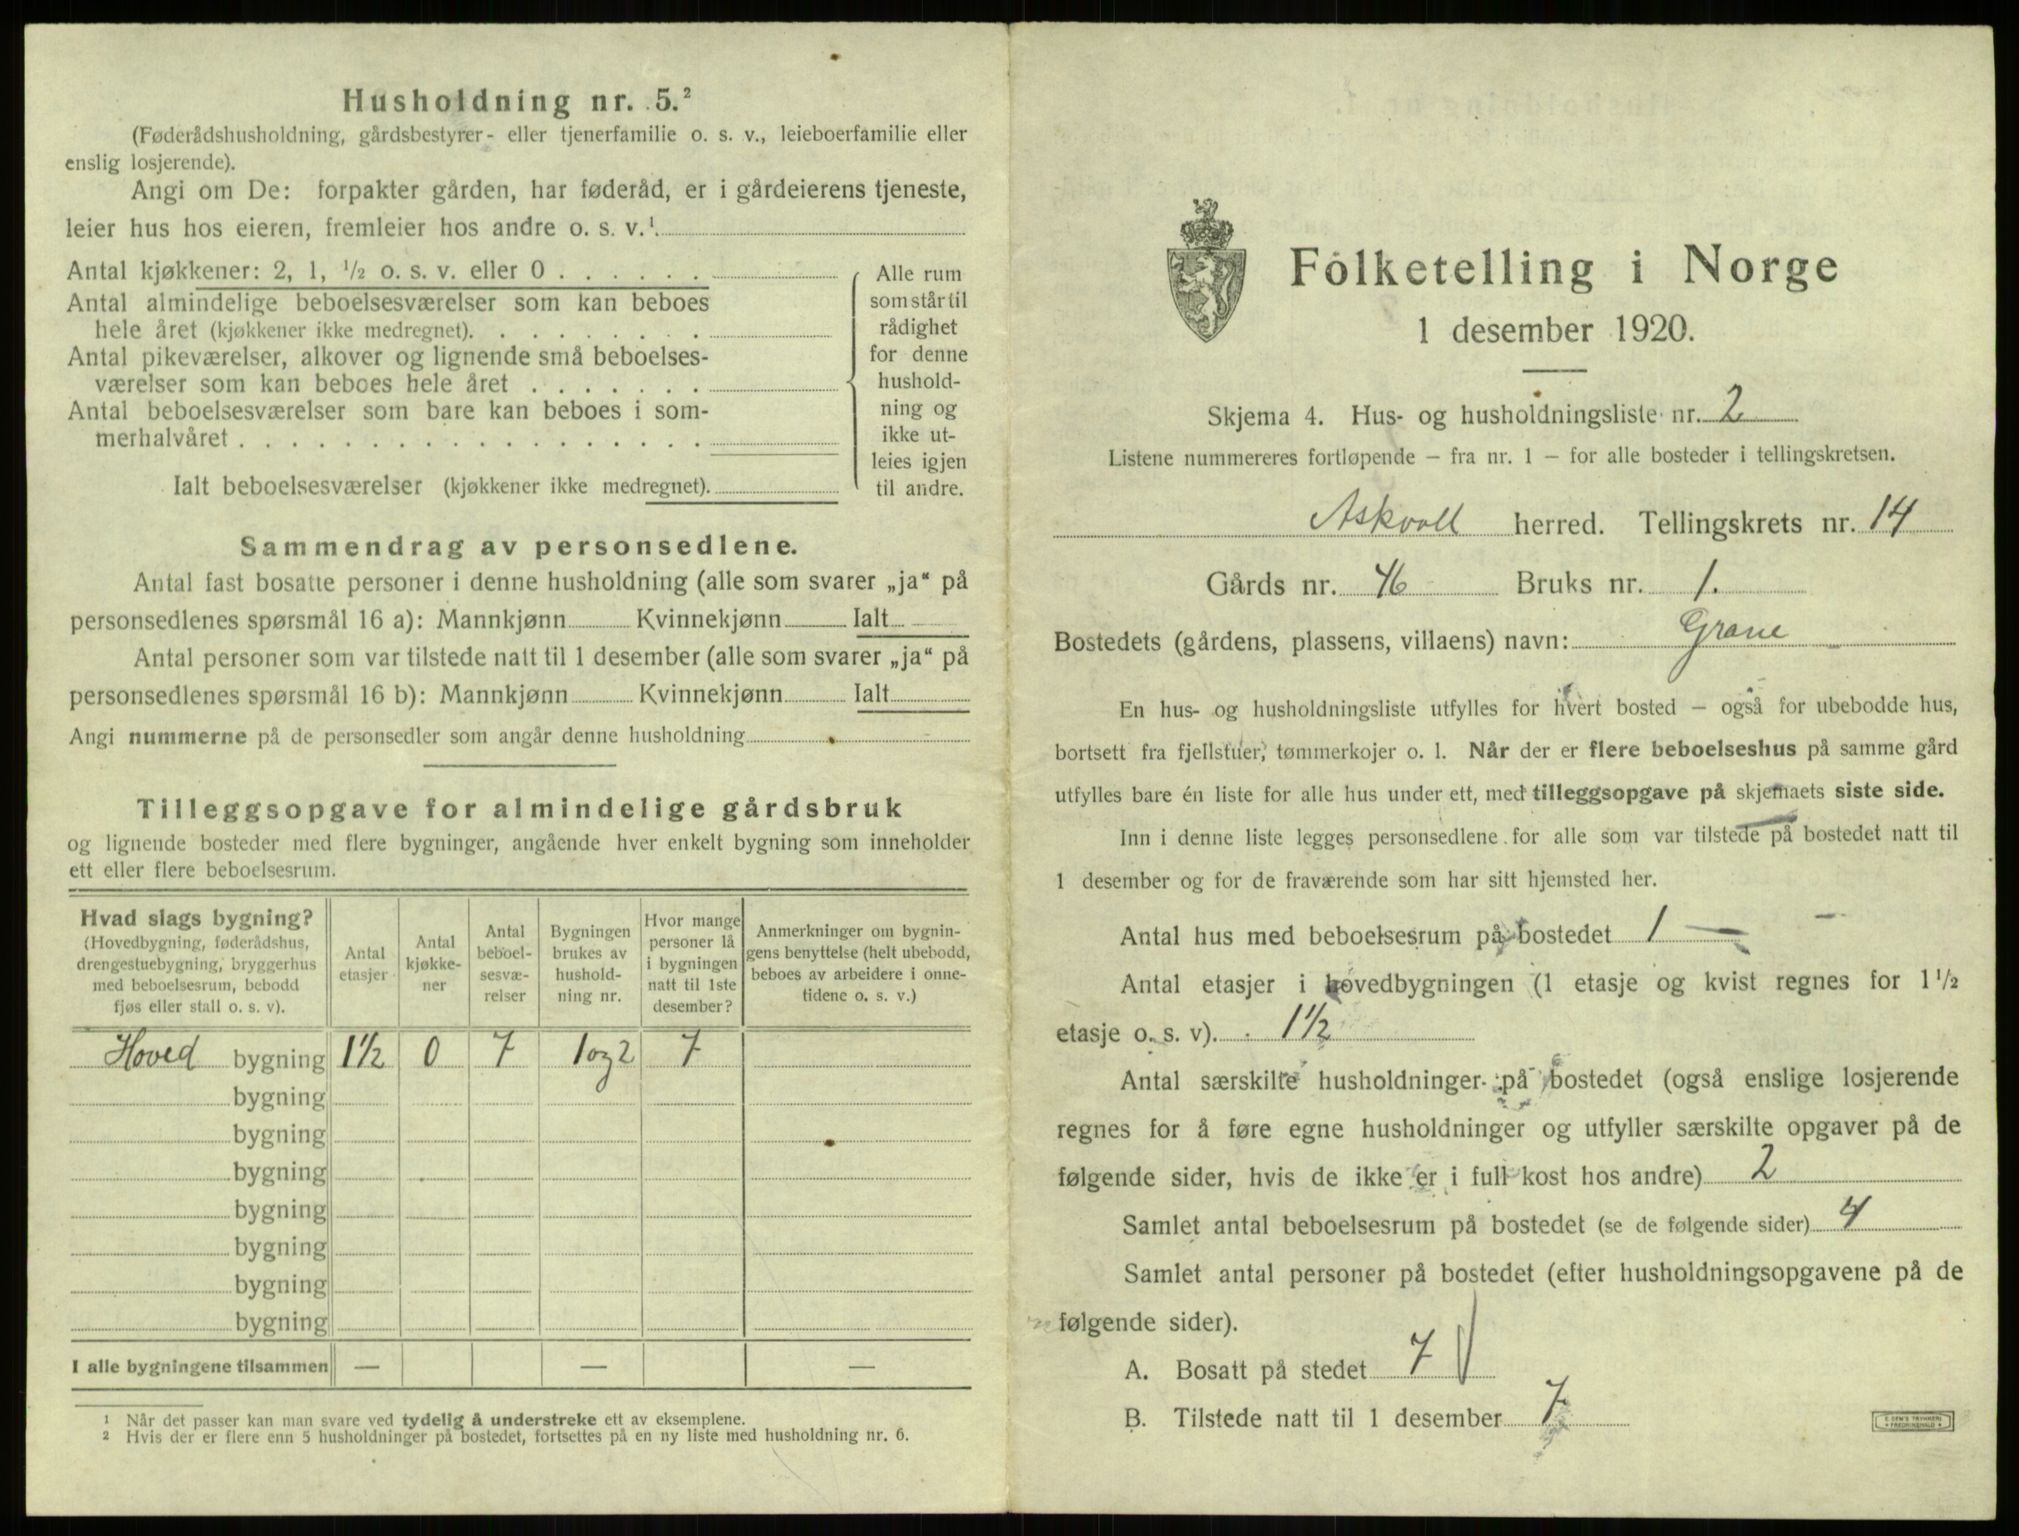 Husholdning nr. 5.²
(Føderådshusholdning, gårdsbestyrer- eller tjenerfamilie o. s. v., leieboerfamilie eller
enslig losjerende).
Angi om De: forpakter gården, har føderåd, er i gårdeierens tjeneste,
leier hus hos eieren, fremleier hos andre o. s. v.¹
Antal kjøkkener: 2, 1, ½ o. s. v. eller 0
Antal almindelige beboelsesværelser som kan beboes
hele året (kjøkkener ikke medregnet).
Antal pikeværelser, alkover og lignende små beboelses-
værelser som kan beboes hele året
Antal beboelsesværelser som bare kan beboes i som-
merhalvåret
Ialt beboelsesværelser (kjøkkener ikke medregnet).
Alle rum
som står til
rådighet
for denne
hushold-
ning og
ikke ut-
leies igjen
til andre.
Sammendrag av personsedlene.
Antal fast bosatte personer i denne husholdning (alle som svarer „ja“ på
personsedlenes spørsmål 16 a): Mannkjønn Kvinnekjønn Ialt
Antal personer som var tilstede natt til 1 desember (alle som svarer „ja“ på
personsedlenes spørsmål 16 b): Mannkjønn Kvinnekjønn Ialt
Angi nummerne på de personsedler som angår denne husholdning
Tilleggsopgave for almindelige gårdsbruk
og lignende bosteder med flere bygninger, angående hver enkelt bygning som inneholder
ett eller flere beboelsesrum.
Hvad slags bygning?
(Hovedbygning, føderådshus,
drengestuebygning, bryggerhus
med beboelsesrum, bebodd
fjøs eller stall o. s. v).
Antal
etasjer
Antal
kjøkke-
ner
Antal
beboel-
sesvæ-
relser
Bygningen
brukes av
hushold-
ning nr.
Hvor mange
personer lå
i bygningen
natt til 1ste
desember?
Anmerkninger om bygnin-
gens benyttelse (helt ubebodd,
beboes av arbeidere i onne-
tidene o. s. v.)
Hoved bygning 1½ 0 7 1 og 2 7
bygning
bygning
bygning
bygning
bygning
bygning
bygning
I alle bygningene tilsammen — — —
¹ Når det passer kan man svare ved tydelig å understreke ett av eksemplene.
² Hvis der er flere enn 5 husholdninger på bostedet, fortsettes på en ny liste med husholdning nr. 6.
Folketelling i Norge
1 desember 1920.
Skjema 4. Hus- og husholdningsliste nr. 2
Listene nummereres fortløpende – fra nr. 1 – for alle bosteder i tellingskretsen.
Askvoll herred. Tellingskrets nr. 14
Gårds nr. 46 Bruks nr. 1.
Bostedets (gårdens, plassens, villaens) navn: Grane
En hus- og husholdningsliste utfylles for hvert bosted – også for ubebodde hus,
bortsett fra fjellstuer, tømmerkojer o. l. Når der er flere beboelseshus på samme gård
utfylles bare én liste for alle hus under ett, med tilleggsopgave på skjemaets siste side.
Inn i denne liste legges personsedlene for alle som var tilstede på bostedet natt til
1 desember og for de fraværende som har sitt hjemsted her.
Antal hus med beboelsesrum på bostedet 1
Antal etasjer i hovedbygningen (1 etasje og kvist regnes for 1½
etasje o. s. v). 1½
Antal særskilte husholdninger på bostedet (også enslige losjerende
regnes for å føre egne husholdninger og utfyller særskilte opgaver på de
følgende sider, hvis de ikke er i full kost hos andre) 2
Samlet antal beboelsesrum på bostedet (se de følgende sider) 4
Samlet antal personer på bostedet (efter husholdningsopgavene på de
følgende sider).
A. Bosatt på stedet 7
B. Tilstede natt til 1 desember 7